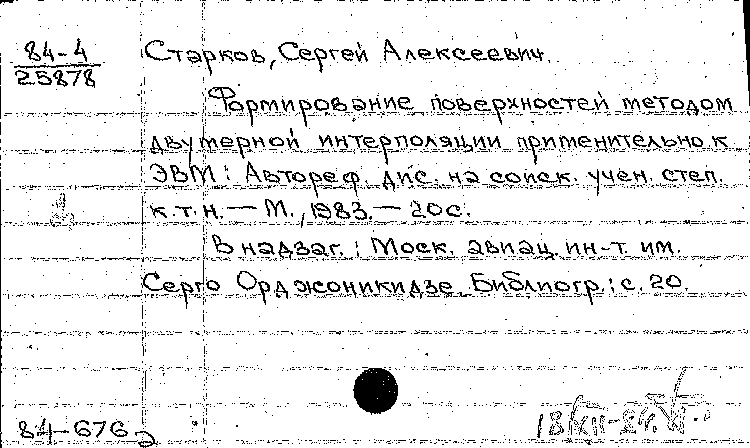 84-4
25878
Старков, Сергей Алексеевич.
Формирование поверхностей методом
двумерной интерполяции применительно к
ЭВМ : Автореф. дис. на соиск. учен. степ.
к.т.н. — М., 1983. — 20 с.
В надзаг. : Моск. авиац. ин-т. им.
Серго Орджоникидзе. Библиогр. : с. 20.
84-676